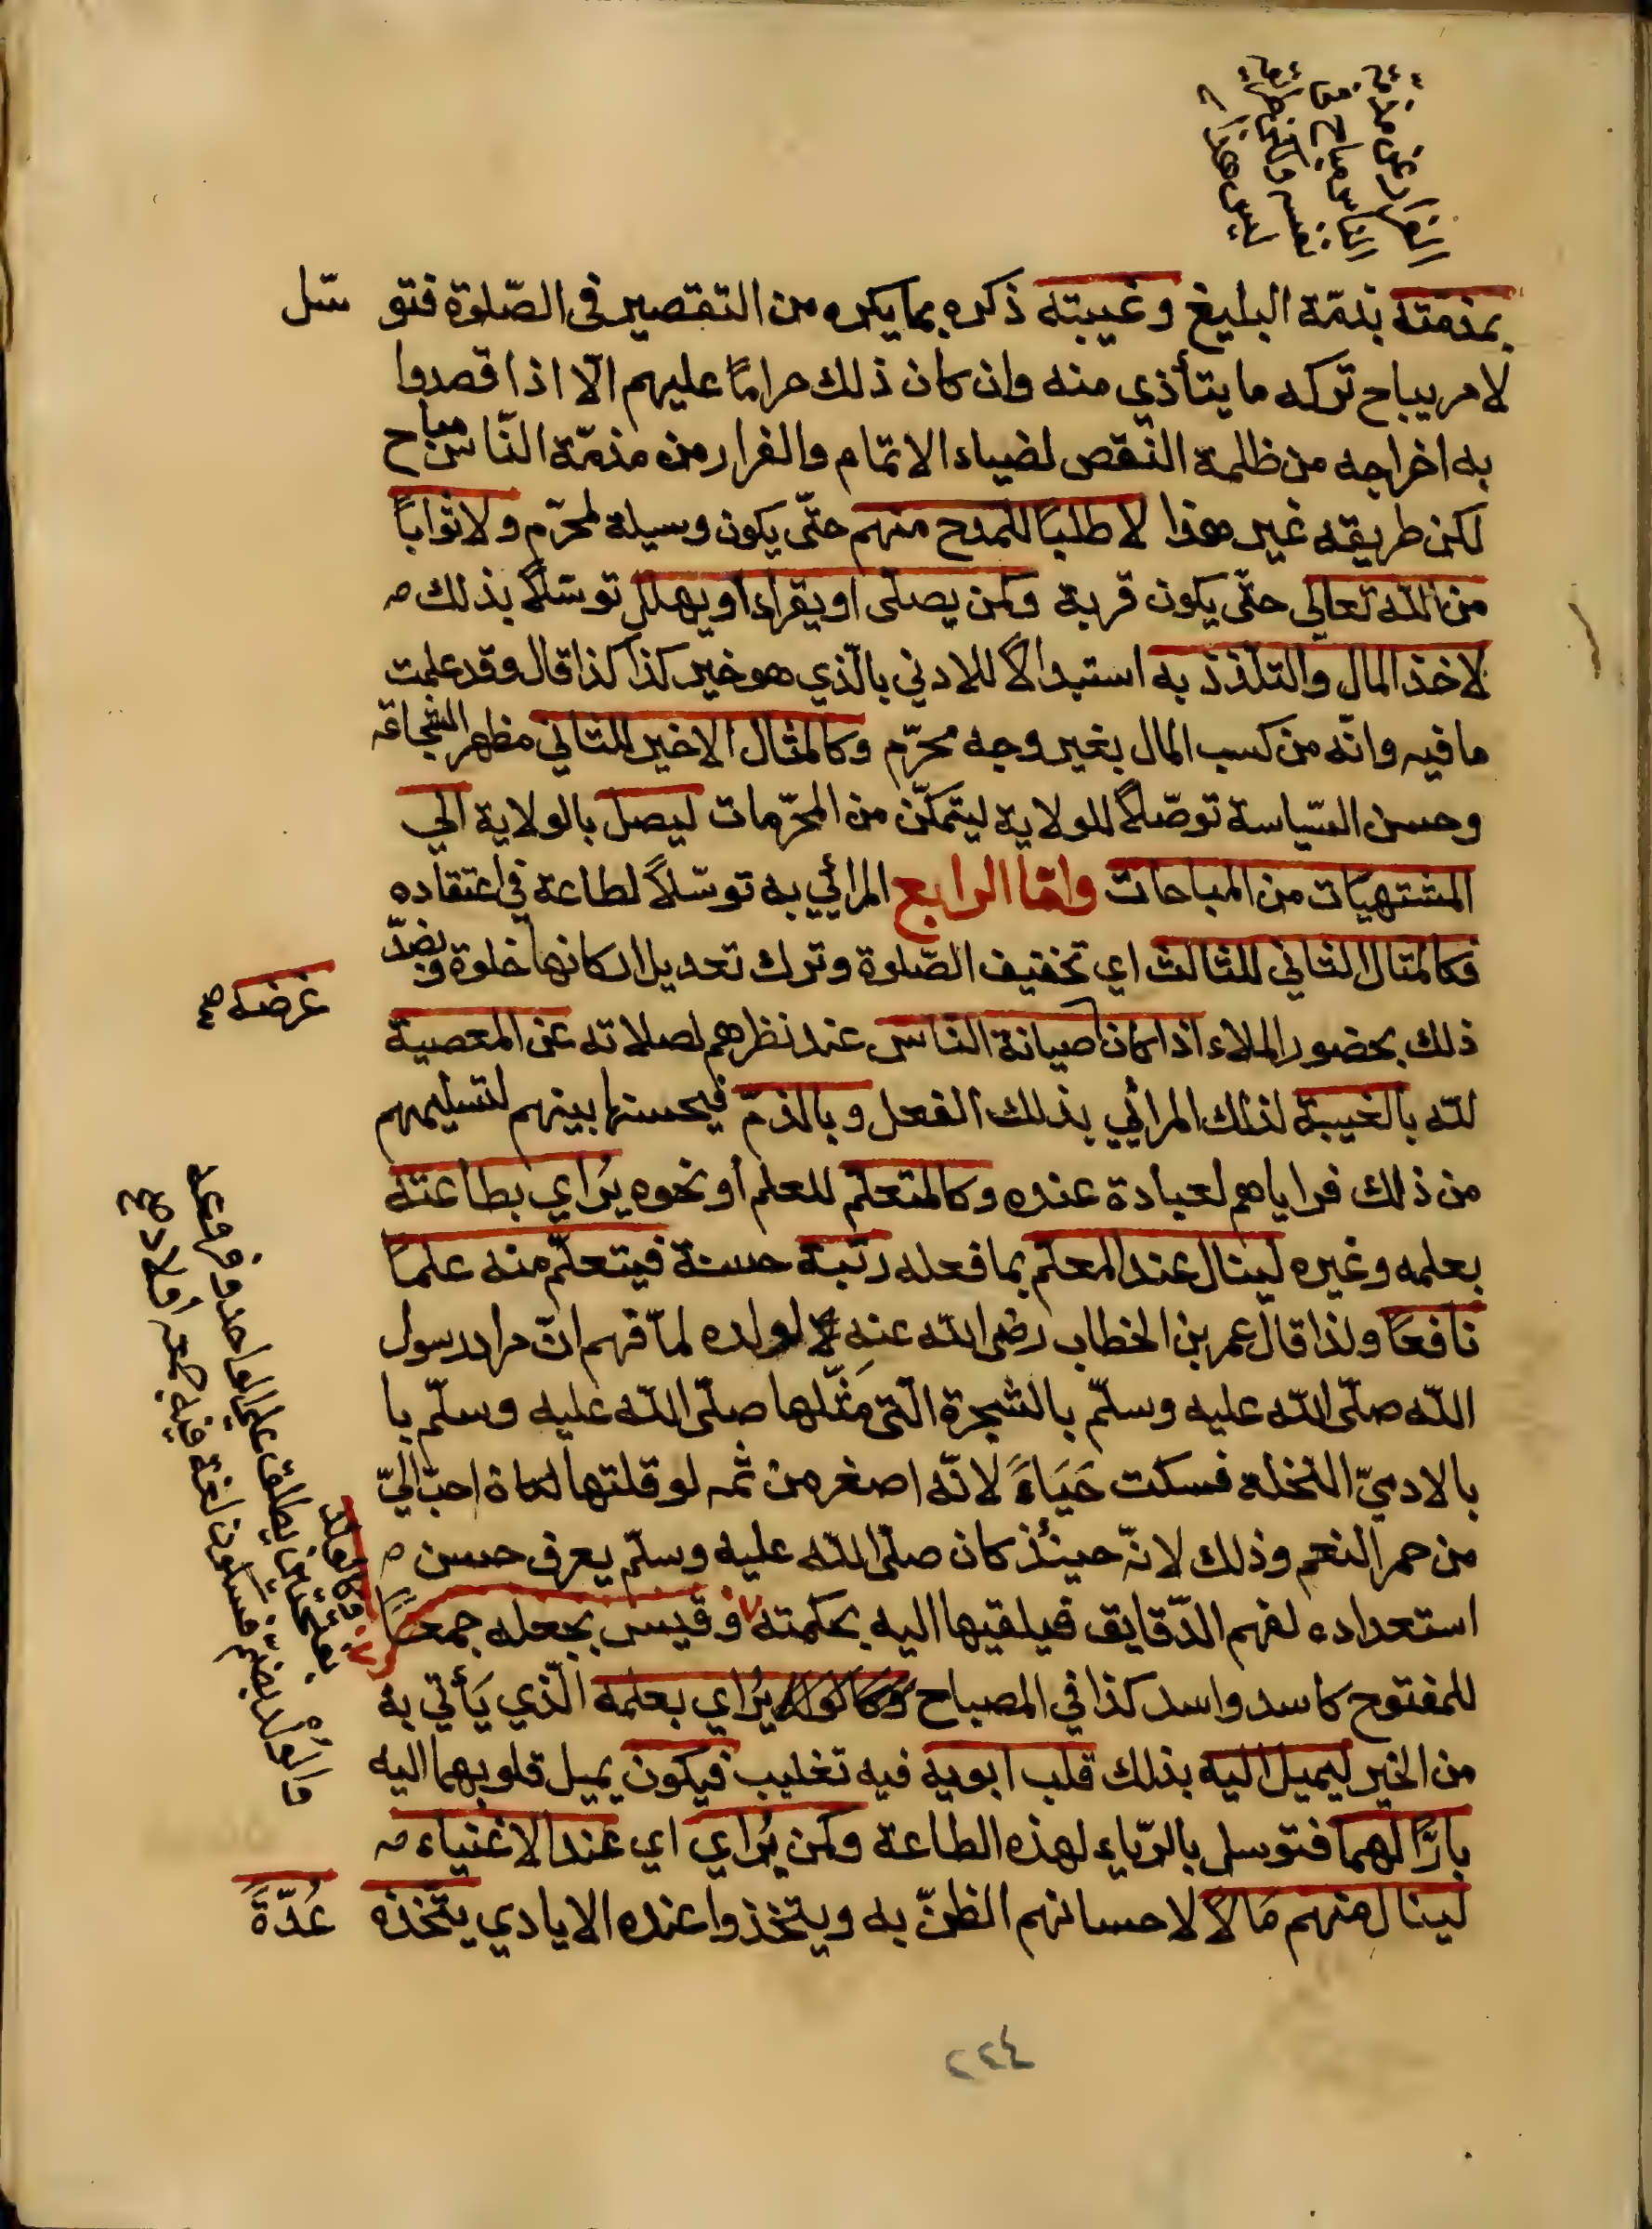 الفرار عن مذمة
الناس مباح
ليس هذا
بمذمته بذمّة البليغ وغيبته ذكره بما يكره من التقصير فى الصّلوة فتوسّل
لامر يباح تركه ما يتأذي منه وان كان ذلك حرامًا عليهم الّا اذا قصدوا
به اخراجه من ظلمة النّقص لضياء الاتمام والفرار من مذمّة النّاس مباح
لكن طريقه غير هذا لا طلبًا للمدح منهم حتّى يكون وسيلة لمحرّم ولا ثوابًا
من الله تعالى حتّى يكون قربة وكمن يصلى او يقراء او يهلل توسّلًا بذلك
لاخذ المال والتلذذ به استبدالًا للادني بالّذي هو خير كذا كذا قال وقد علمت
ما فيه وانّه من كسب المال بغير وجه محرّم وكالمثال الاخير للثاني مظهر الشجاعة
وحسن السّياسة توصّلًا للولاية ليتمكّن من المحرّمات ليصل بالولاية الي
المشتهيات من المباحات وامّا الرابع المرائي به توسّلًا لطاعة في اعتقاده
فكالمثال الثاني للثالث اي تخفيف الصّلوة وترك تعديل اركانها خلوة وبضدّ
ذلك بحضور الملاء اذا كان صيانة الناس عند نظرهم لصلاته عن المعصية
غرضه صح
لله بالغيبة لذلك المرائي بذلك الفعل وبالذمّ فيحسنها بينهم لتسليمهم
من ذلك فراياهم لعبادة عنده وكالمتعلّم للعلم أو نحوه يُراي بطاعته
بعلمه وغيره لينال عند المعلّم بما فعله رتبة حسنة فيتعلّم منه علمًا
نافعًا ولذا قال عمر بن الخطاب رضى الله عنه لولده لمّا فهم انّ مراد رسول
الله صلّى الله عليه وسلّم بالشجرة الّتى مَثّلها صلّى الله عليه وسلّم با
بالادميّ النخلة فسكت حَيَاءً لانّه اصغر من ثمه لو قلتها لكان احبّ اليّ
من حمر النعم وذلك لانّه حينئذ كان صلّى الله عليه وسلّم يعرف حسن
استعداده لفهم الدّقايق فيلقيها اليه بحكمته وقيس بجعله جمعًا
للمفتوح كاسد واسد كذا في المصباح وكالولد يُراي بعلمه الّذي يَأتي به
من الخير ليميل اليه بذلك قلب ابويه فيه تغليب فيكون يميل قلوبهما اليه
بارًّا لهما فتوسل بالرّياء لهذه الطاعة وكمن يُراي اي عند الاغنياء
لينال منهم مَالًا لاحسانهم الظنّ به ويتخذوا عنده الايادي يتّخذه عُدّةً
وكالولد
بفتحتين يطلق على الواحد وفروعه
والولد بضمّ فسكون لغة فيه
٢٢٤